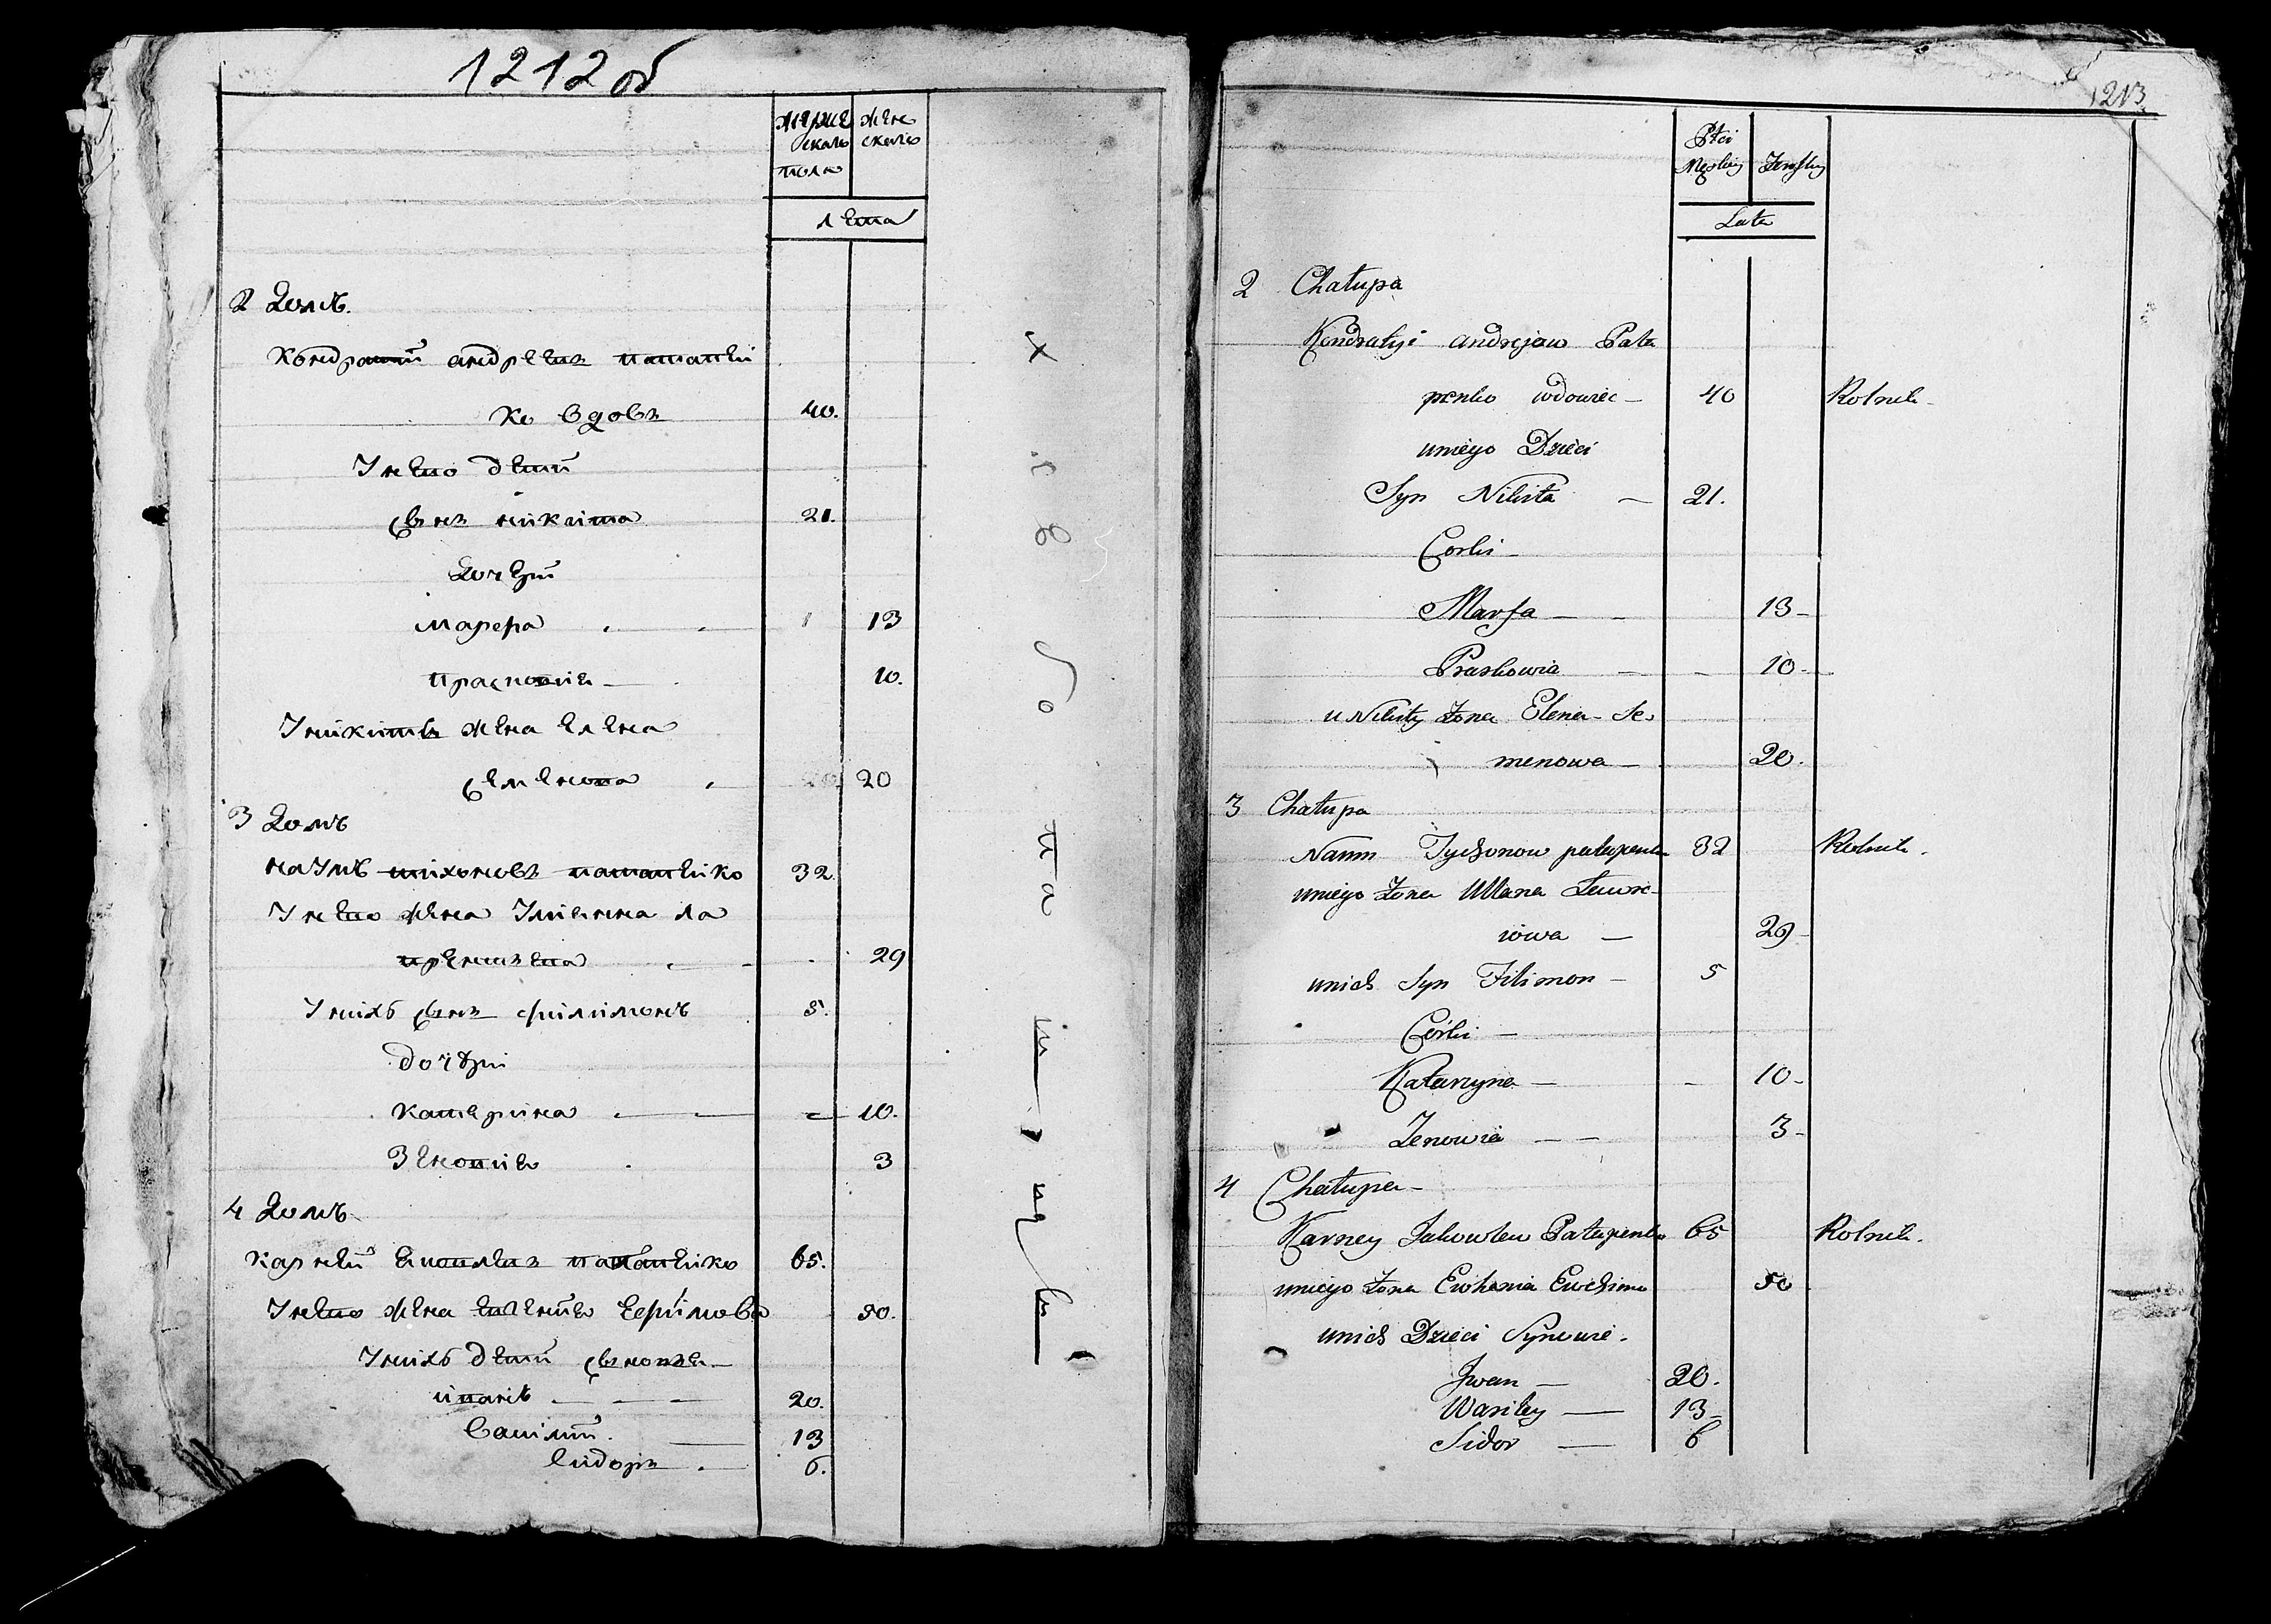 1212 об
мужескаго женскаго
пола
лета
2 Домъ.
Кондратий андреевъ потапеи
ко вдовъ 40.
У него дети
сынъ никита 21.
Дочери
марфа 13
прасковия 10.
У никиты жена елена
семенова 20
3 Домъ
наумъ тихоновъ потапенко 32.
У него жена
29
У нихъ сынъ филимонъ 5.
дочери
катерина 10.
Зеновия 3
4 Домъ
Карней яковлевъ потапенко 65.
У него жена евгения Ефимова 50.
У нихъ дети сыновья
иванъ 20.
василий 13
сидоръ 6.
х л е б о п а ш ц ы
1213
Płci
Męskiey Żeńskiey
Lata
2 Chałupa
Kondratyi andrejew Pata
penko wdowiec 40 Rolnik
uniego Dzieci
Syn Nikita 21.
Corki
Marfa 13
Praskowia 10
u Nikity żona Elena Se
menowa 20.
3 Chałupa
Naum Tychonow patapenko 32 Rolnik.
uniego żona Ulana Lawre
iowa 29
unich Syn Filimon 5
Córki
Katarzyna 10
Zenowia 3
4 Chałupa
Karney Jakowlew Patapenko 65 Rolnik.
uniego żona Ewhenia Ewchimo 50
unich Dzieci Synowie.
Iwan 20.
Wasiley 13
Sidor 6